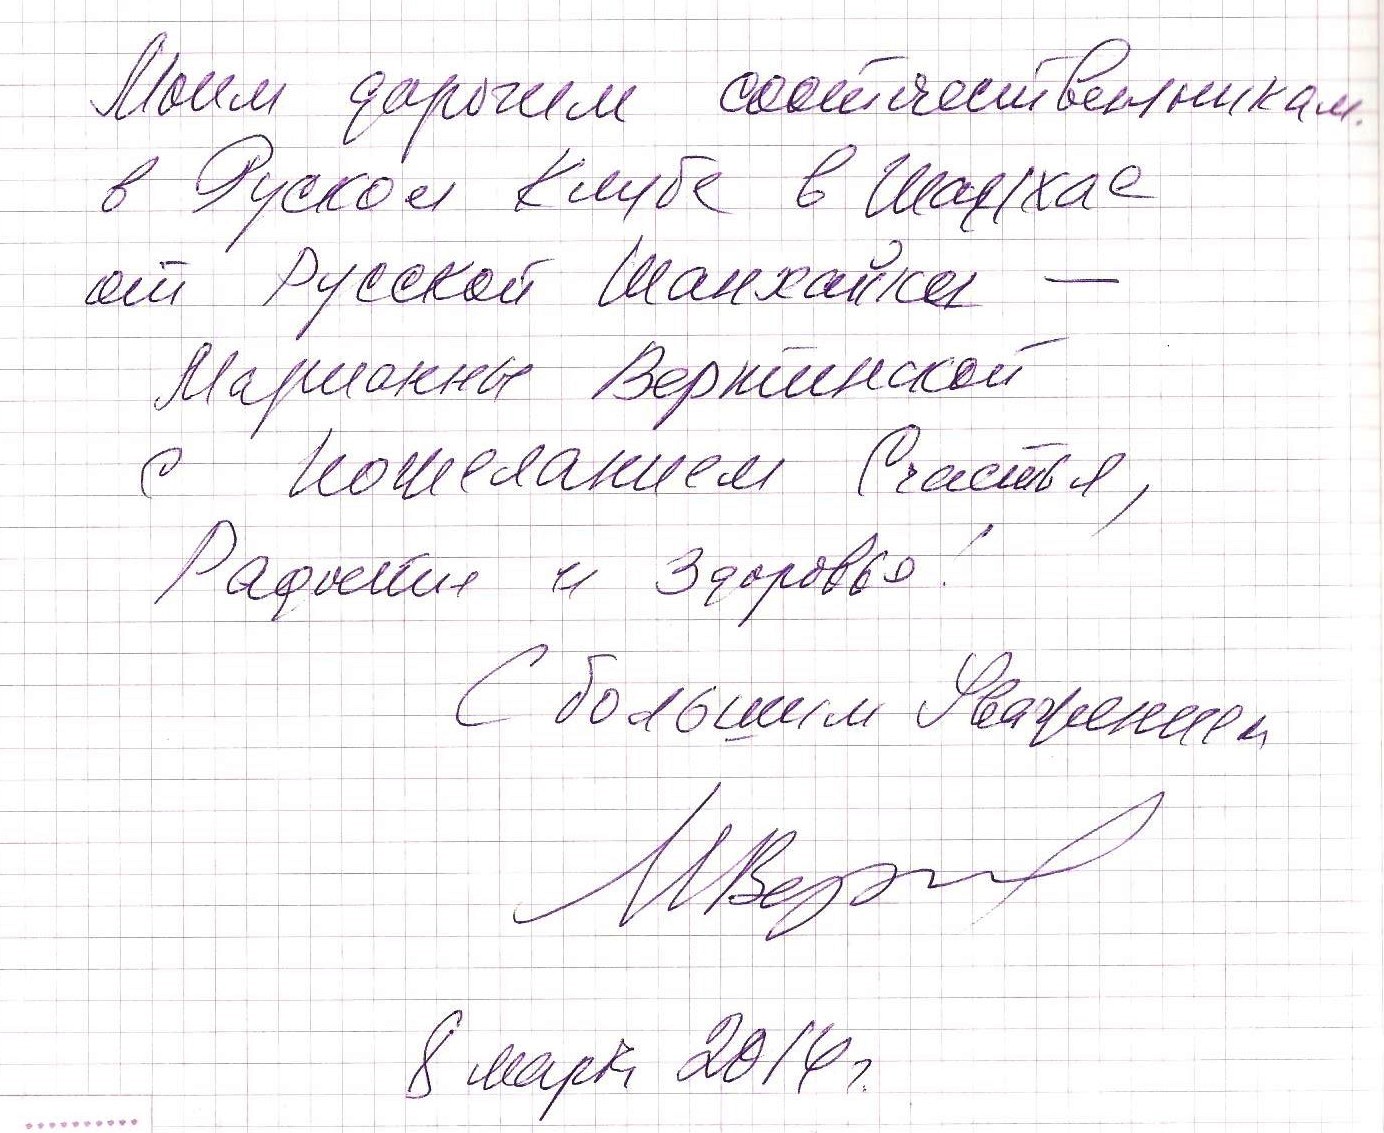 Моим дорогим соотечественникам
в Руском Клубе в Шанхае
от Русской Шанхайки —
Марианны Вертинской
с пожеланием Счастья,
Радости и Здоровья!
С большим Уважением
МВерт
8 марта 2014 г.